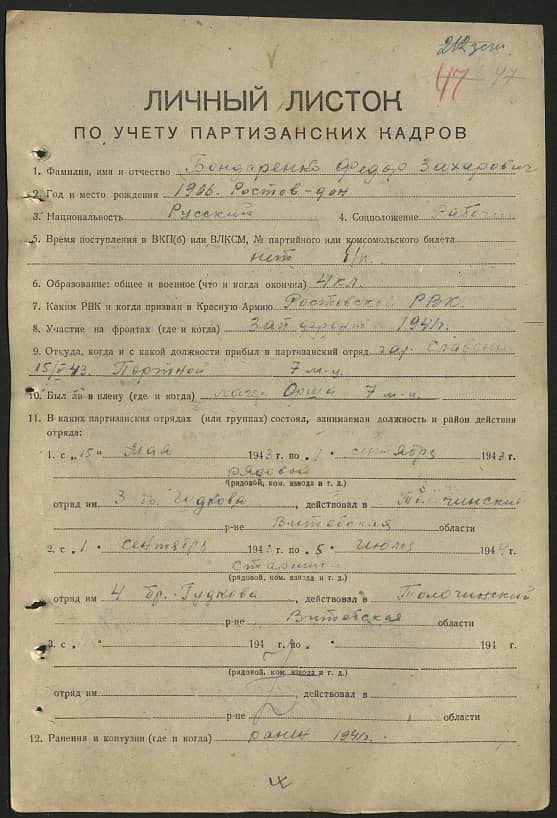 47 47
ЛИЧНЫЙ ЛИСТОК
ПО УЧЕТУ ПАРТИЗАНСКИХ КАДРОВ
1. Фамилия, имя и отчество Бондаренко Федор Захарович
2. Год и место рождения 1906. Ростов-дон
3. Национальность Русский 4. Соцположение Рабочий
5. Время поступления в ВКП(б) или ВЛКСМ, № партийного или комсомольского билета
нет б/п.
6. Образование: общее и военное (что и когда окончил) 4 кл.
7. Каким РВК и когда призван в Красную Армию Ростовский РВК
8. Участие на фронтах (где и когда) Зап 1941г.
9. Откуда, когда и с какой должности прибыл в партизанский отряд
15/V 43. Портной 7 м-ц
10. Был ли в плену (где и когда) Орша 7 м-ц
11. В каких партизанских отрядах (или группах) состоял, занимаемая должность и район действия
отряда:
1. с „15" Мая 1943 г. по „1 сентябрь 1943 г.
рядовой
(рядовой, ком. взвода и т. д.)
отряд им 3 бр. Гудкова, действовал в Толочинский
р-не Витебская области
2. с „1 " сентябрь 1943 г. по „5 " июль 1944 г.
(рядовой, ком. взвода и т. д.)
отряд им 4 бр. Гудкова, действовал в Толочинский
р-не Витебская области
3. с „ " 194 г. по „ " 194 г.
(рядовой, ком. взвода и т. д.)
отряд им , действовал в
р-не области
12. Ранения и контузии (где и когда) ранен 1941г.